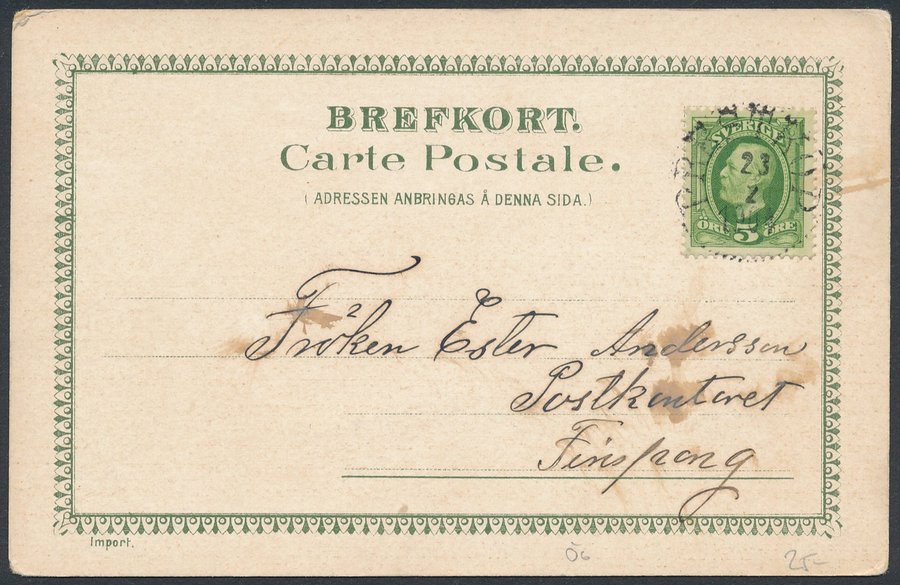 BREFKORT.
Carte Postale.
(ADRESSEN ANBRINGAS Å DENNA SIDA.)
SVERIGE
23
ÖRE 5 ÖRE
Fröken Ester Andersson
Postkontoret
Finspong
Import.
Ög
25-